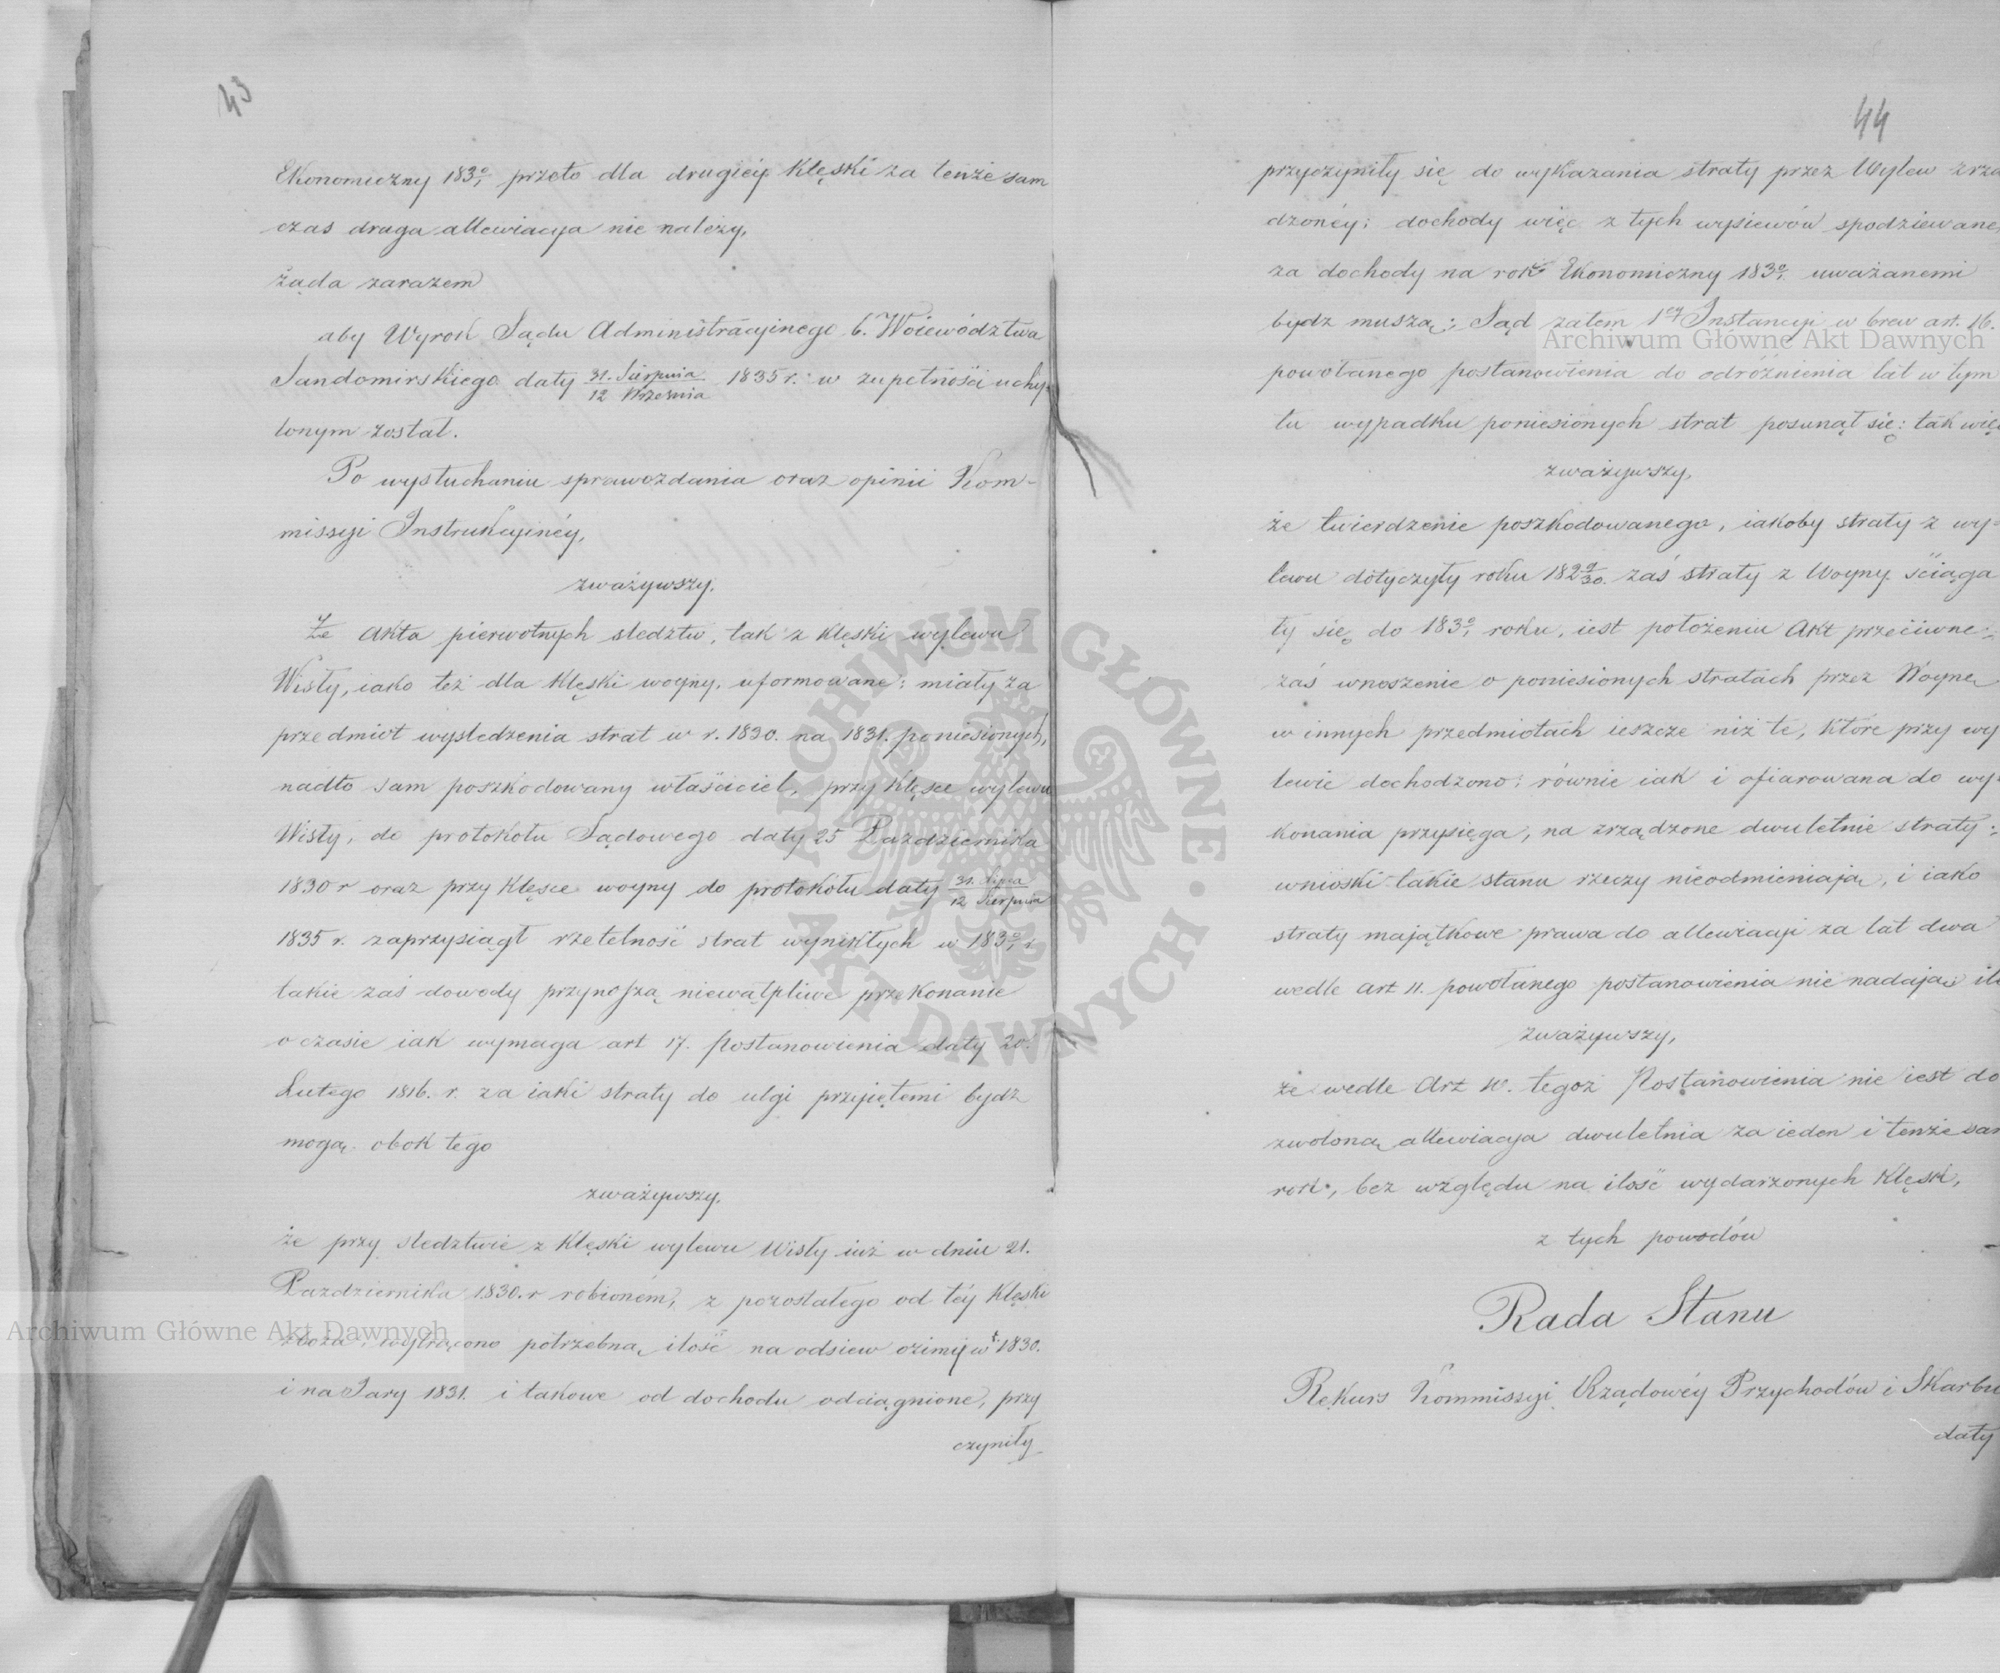 43
Ekonomiczny 183 0/1 przeto dla drugiéy Klęski za tenże sam
czas druga allewiacya nie należy,
żąda zarazem
aby Wyrok Sądu Administracyinego b. Woiewództwa
Sandomirskiego daty 31. Sierpnia / 12 Września 1835 r. w zupełności uchy-
lonym został.
Po wysłuchaniu sprawozdania oraz opinii Kom-
missyi Instrukcyinéy,
zważywszy.
Że Akta pierwotnych sledztw, tak z klęski wylewu
Wisły, iako też dla Klęski woyny, uformowane; miały za
przedmiot wysledzenia strat w r. 1830. na 1831. poniesionych,
nadto sam poszkodowany właściciel, przy Klęsce wylewu
Wisły, do protokołu Sądowego daty 25 Pazdziernika
1830 r oraz przy Klęsce woyny do protokołu daty 31. Lipca / 12 Sierpnia
1835 r. zaprzysiągł rzetelność strat wynikłych w 183 0/1 r.
takie zaś dowody przynoszą niewątpliwe przekonanie
o czasie iak wymaga art 17. Postanowienia daty 20.
Lutego 1816. r. za iaki straty do ulgi przyiętemi bydz
mogą. obok tego
zważywszy,
że przy sledztwie z Klęski wylewu Wisły iuż w dniu 21.
Pazdziernika 1830. r robioném, z pozostałego od téy Klęski
zboża, wytrącono potrzebną ilość na odsiew ozimy w r. 1830.
i na Jary 1831. i takowe od dochodu odciągnione, przy
czyniły
44
przyczyniły się do wykazania straty przez Wylew zrzą
dzonéy; dochody więc z tych wysiewów spodziewane,
za dochody na rok Ekonomiczny 183 0/1 uważanemi
bydz muszą; Sąd zatem 1ey Instancyi w brew art. 16.
powołanego postanowienia do odróżnienia lat w tym
tu wypadku poniesionych strat posunął się; tak więc
zważywszy,
że twierdzenie poszkodowanego, iakoby straty z wy-
lewu dotyczyły roku 182 9/30. zaś straty z Woyny ściąga
ły się do 183 0/1 roku, iest położeniu Akt przeciwne;
zaś wnoszenie o poniesionych stratach przez Woynę
w innych przedmiotach ieszcze niż te, które przy wy
lewie dochodzono; równie iak i ofiarowana do wy-
konania przysięga, na zrządzone dwuletnie straty;
wnioski takie stanu rzeczy nieodmieniają, i iako
straty majątkowe prawa do allewiacyi za lat dwa
wedle art 11. powołanego postanowienia nie nadają; ile
zważywszy,
że wedle Art 10. tegoż Postanowienia nie iest do
zwoloną allewiacya dwuletnia za ieden i tenże sam
rok, bez względu na ilość wydarzonych Klęsk,
z tych powodów
Rada Stanu
Rekurs Kommissyi Rządowéy Przychodów i Skarbu
daty
Archiwum Główne Akt Dawnych
Archiwum Główne Akt Dawnych
ARCHIWUM GŁÓWNE AKT DAWNYCH